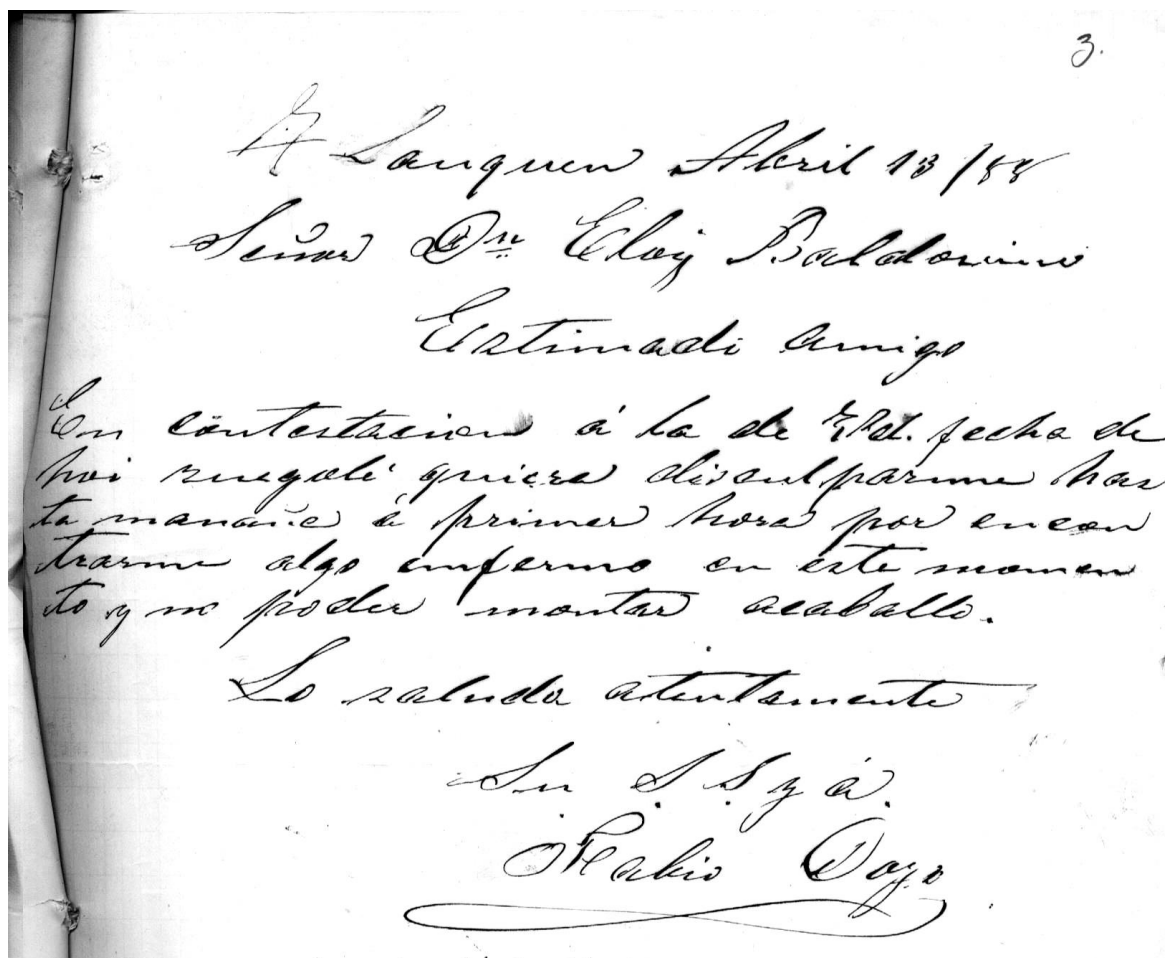 3.
T Lauquen Abril 13/88
Señor Dn Eloy Baldovino
Estimado amigo
En contestacion á la de Vd. fecha de
hoi ruegole quiera disculparme has
ta mañana á primer hora por encon
trarme algo enfermo en este momen
to y no poder montar acaballo.
Lo saluda atentamente
Su S. S. y á.
Fabio Dozo